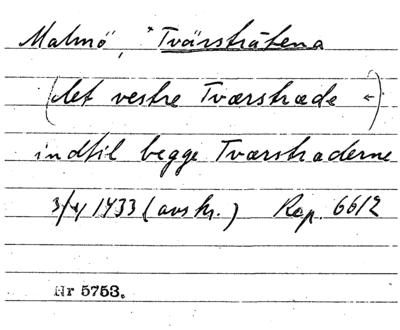 Malmö, *Tvärstråtena
(det vestre Tværstræde ←)
indtil begge Tværstraderne
3/4 1433 (avskr.) Rep. 6612
Nr 5753.